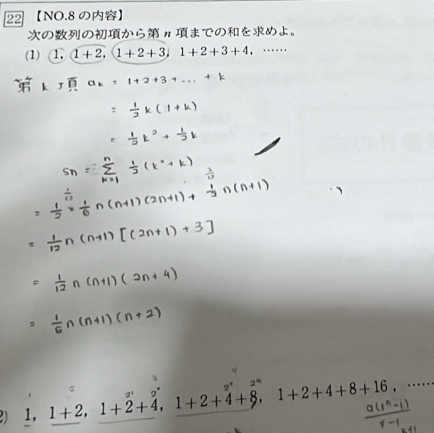 22 【NO.8 の内容】
次の数列の初項から第 n 項までの和を求めよ。
(1) 1, 1+2, 1+2+3, 1+2+3+4, ……
第 k 項 ak = 1+2+3+...+k
= 1/2 k(1+k)
= 1/2 k² + 1/2 k
Sn = Σ[k=1, n] 1/2 (k²+k)
= 1/2 × 1/6 n(n+1)(2n+1) + n(n+1)
= 1/12 n(n+1)[(2n+1)+3]
= 1/12 n(n+1)(2n+4)
= 1/6 n(n+1)(n+2)
2) 1, 1+2, 1+2+4, 1+2+4+8, 1+2+4+8+16, ……
a(rⁿ-1)/r-1